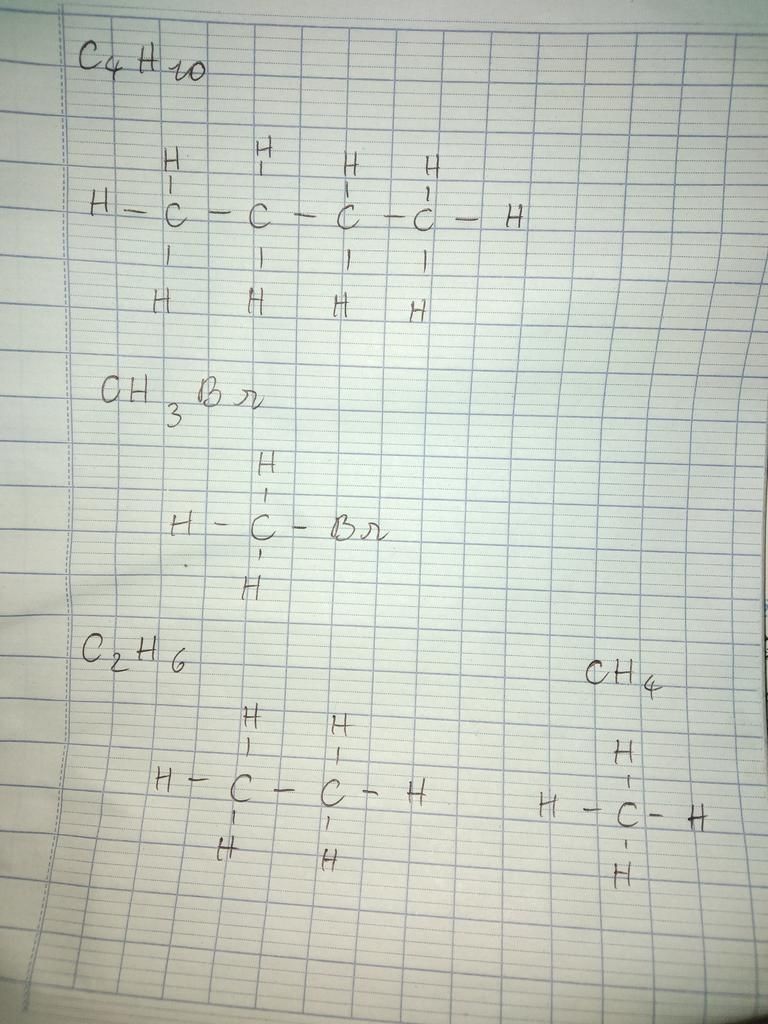 C4H10
H H H H
H - C - C - C - C - H
H H H H
CH3Br
H
H - C - Br
H
C2H6
H H
H - C - C - H
H H
CH4
H
H - C - H
H